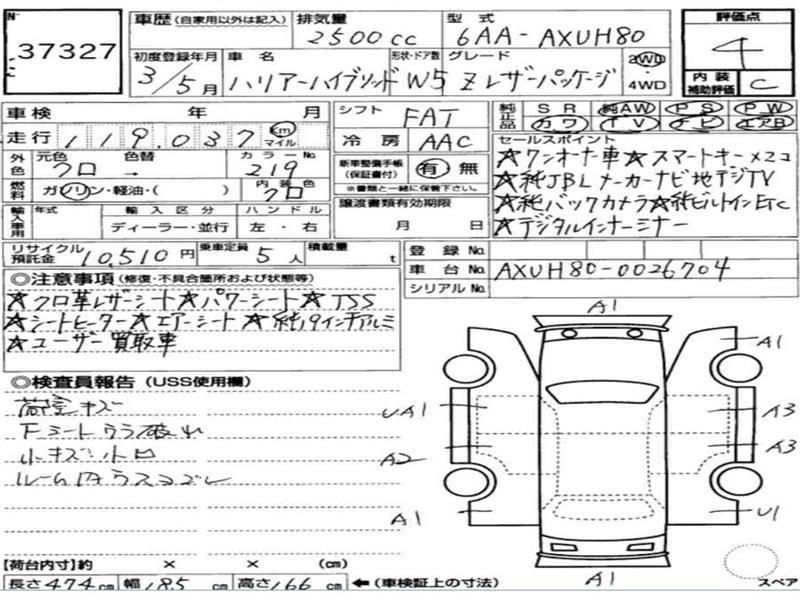 37327
車歴(自家用以外は記入) 排気量 2500cc 型式 6AA-AXUH80
初度登録年月 3/5月 車名 ハリアーハイブリッド 形状・ドア数 W5 グレード Zレザーパッケージ 2WD・4WD
評価点 4
内装補助評価 C
車検 年 月
走行 119,037 Km マイル
外色 元色 クロ 色替 → カラーNo. 219
燃料 ガソリン・軽油・( ) 内装色 クロ
輸入車用 年式 輸入区分 ディーラー・並行 ハンドル 左・右
リサイクル預託金 10,510円 乗車定員 5人 積載量 t
シフト FAT
冷房 AAC
新車整備手帳(保証書付) 有・無
※書類と一緒に保管下さい。
譲渡書類有効期限 月 日
純正品 SR 純AW PS PW
カワ TV ナビ エアB
セールスポイント
★ワンオーナー車★スマートキー×2コ
★純JBLメーカーナビ地デジTV
★純バックカメラ★純ビルトインETC
★デジタルインナーミラー
登録No.
車台No. AXUH80-0026704
シリアルNo.
◎注意事項(修復・不具合箇所および状態等)
★クロ革レザーシート★パワーシート★TSS
★シートヒーター★エアーシート★純19インチアルミ
★ユーザー買取車
◎検査員報告(USS使用欄)
荷室キズ
Fシートウラ破れ
小キズ小凹
ルーム内ウスヨゴレ
A1
A1
UA1 A3
A2 A3
A1 U1
A1
スペア
【荷台内寸】約 × × (cm)
長さ474cm 幅185cm 高さ166cm ←(車検証上の寸法)